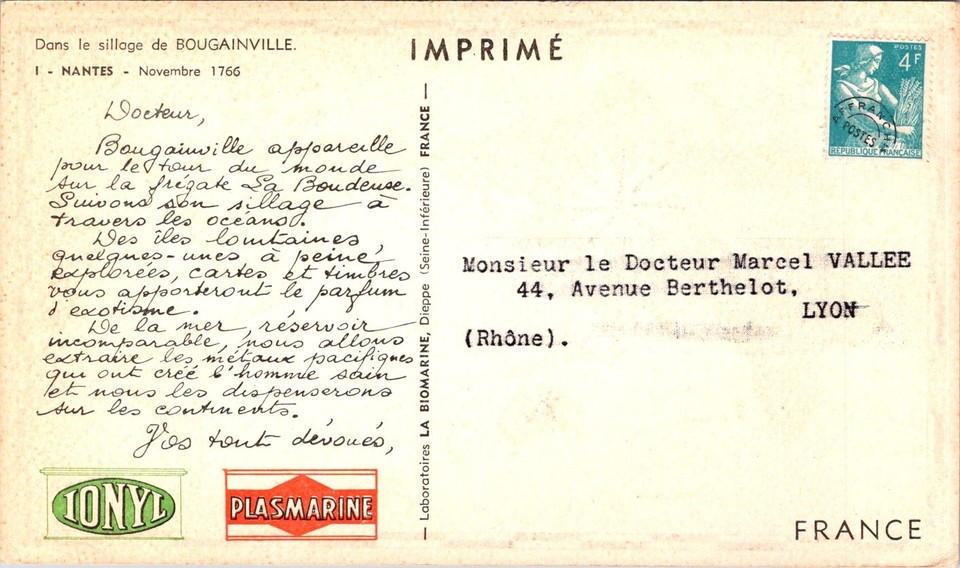 Dans le sillage de BOUGAINVILLE.
I - NANTES - Novembre 1766
Docteur,
Bougainville appareille
pour le tour du monde
sur la frégate La Boudeuse.
Suivons son sillage à
travers les océans.
Des îles lointaines,
quelques-unes à peine
explorées, cartes et timbres
vous apporteront le parfum
d'exotisme.
De la mer, réservoir
incomparable, nous allons
extraire les métaux pacifiques
qui ont créé l'homme sain
et nous les dispenserons
sur les continents.
Vos tout dévoués,
IONYL
PLASMARINE
Laboratoires LA BIOMARINE, Dieppe (Seine-Inférieure) FRANCE
IMPRIMÉ
POSTES
4F
AFFRANCHts
POSTES
REPUBLIQUE FRANÇAISE
Monsieur le Docteur Marcel VALLEE
44, Avenue Berthelot,
LYON
(Rhône).
FRANCE